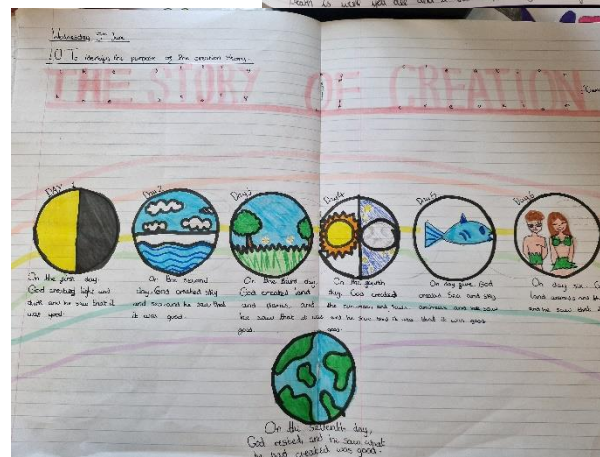 Wednesday 9th June
LO: To identify the purpose of the creation story.
THE STORY OF CREATION
DAY 1
Day 2
Day 3
Day 4
Day 5
Day 6
On the first day,
God created light and
dark and he saw that it
was good.
On the second
day, God created sky
and sea and he saw that
it was good.
On the third day,
God created land
and plants, and
he saw that it was
good.
On the fourth
day, God created
the sun moon and stars
and he saw that it was
good.
On day five, God
created sea and sky
animals and he saw
that it was good
On day six, G
land animals and h
and he saw that i
On the seventh day,
God rested, and he saw what
he had created was good.